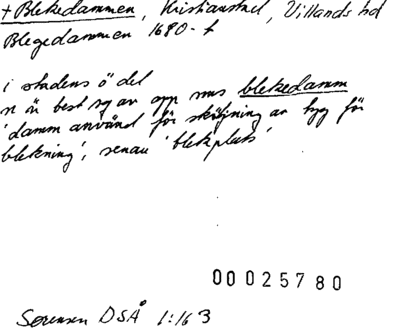 + Blekedammen, Kristianstad, Villands hd
Blegedammen 1680-t
i stadens ö del
n är best sg av app sms blekedamm
'damm använd för sköljning av tyg för
blekning', senare 'blekplats'
00025780
Sørensen DSÅ 1:163